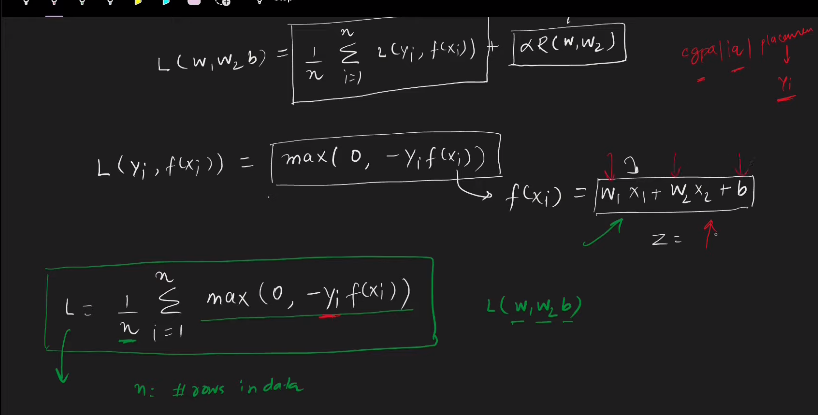 L(w₁w₂b) = 1/n n∑i=1 L(yᵢ, f(xᵢ)) + αR(w₁w₂)
cgpa|iq|
yᵢ
L(yᵢ, f(xᵢ)) = max(0, -yᵢf(xᵢ))
f(xᵢ) = w₁x₁ + w₂x₂ + b
z =
L = 1/n n∑i=1 max(0, -yᵢf(xᵢ))
L(w₁w₂b)
n: # rows in data